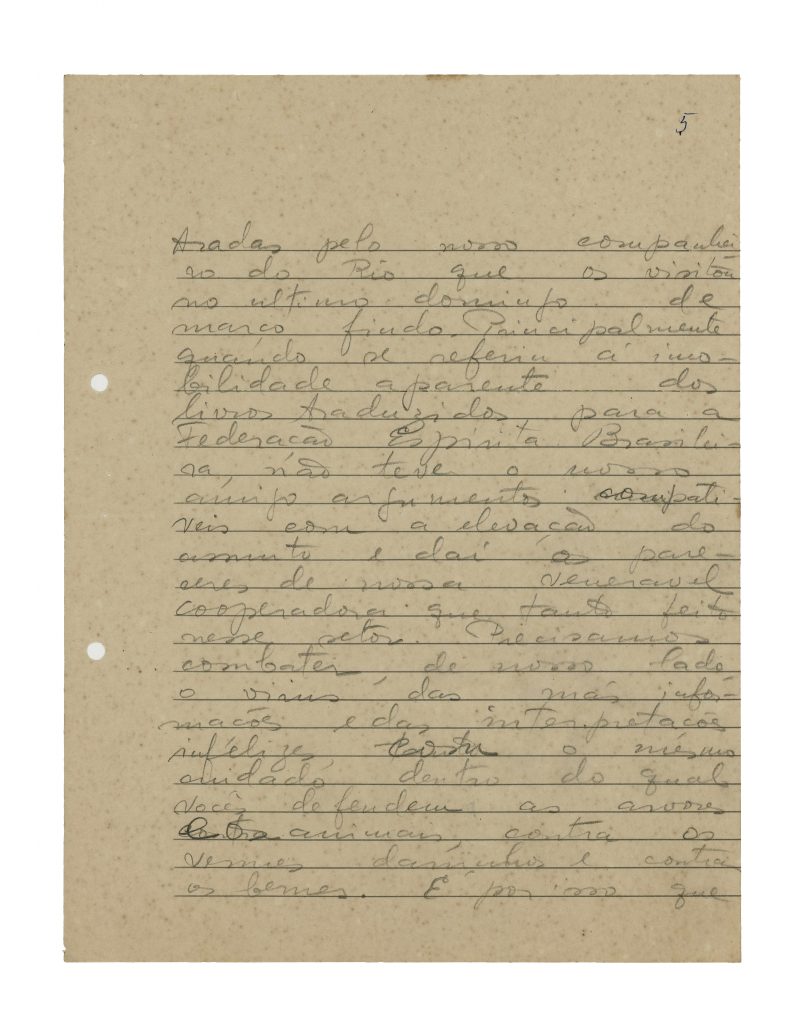 5
tradas pelo nosso companhei
ro do Rio que os visitou
no ultimo domingo de
março findo. Principalmente
quando se referiu á imo-
bilidade aparente dos
livros traduzidos para a
Federação Espirita Brasilei-
ra, não teve o nosso
amigo argumentos compati-
veis com a elevação do
assunto e daí os pare-
ceres de nossa veneravel
cooperadora que tanto feito
nesse setor. Precisamos
combater de nosso lado
o virus das más infor-
mações e das interpretaçõe
infelizes o mesmo
cuidado dentro do qual
vocês defendem as arvores
animais contra os
vermes daninhos e contra
os bernes. E por isso que